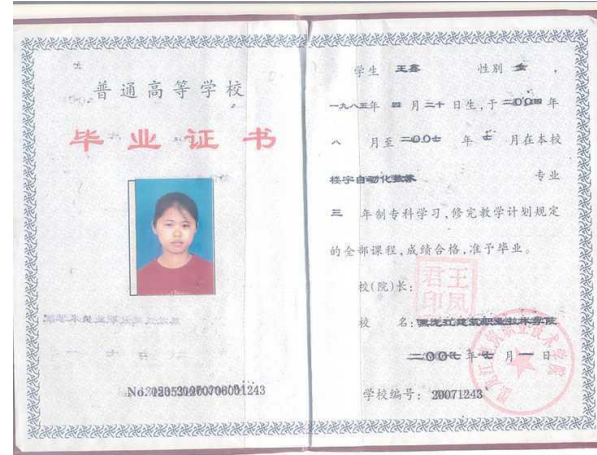 普通高等学校
毕业证书
学生 王鑫 性别 女 ，
一九八五年 四 月 二十 日生，于 二〇〇四 年
八 月至 二〇〇七 年 七 月在本校
楼宇自动化 专业
三 年制专科学习，修完教学计划规定
的全部课程，成绩合格，准予毕业。
校(院)长：
君王
印凤
校 名：黑龙江建筑职业技术学院
二〇〇七年七月一日
学校编号： 20071243